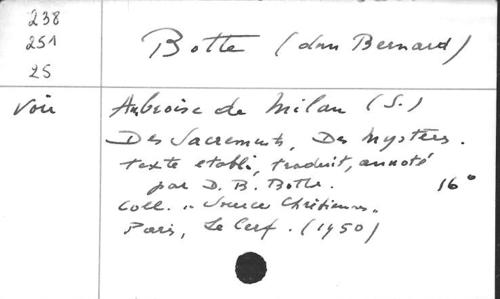 238
251
25
Botte (dom Bernard)
Voir
Ambroise de Milan (S.)
Des Sacrements, Des Mystères.
texte établi, traduit, annoté
par D. B. Botte. 16°
Coll. "Source Chrétiennes"
Paris, Le Cerf. (1950)